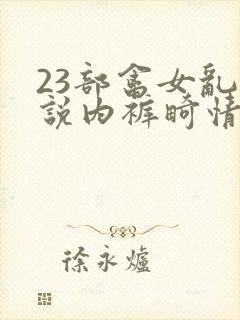 23部畲女乱
說内裤畸情
徐永爐